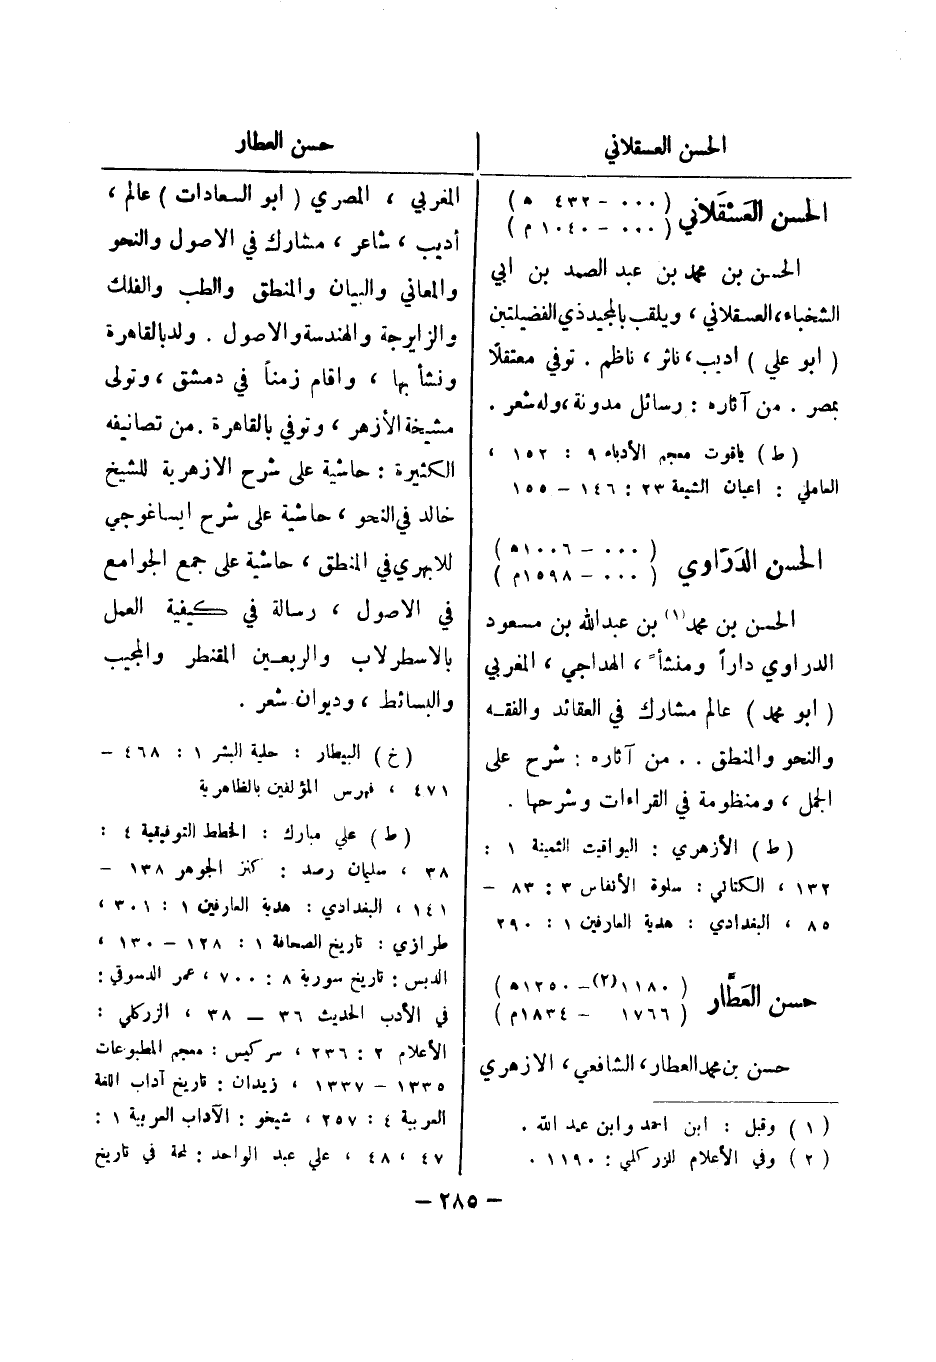 الحسن العسقلاني
حسن العطار
الحسن العَسْقَلاني ( ٠٠٠ - ٤٣٢ ه )
( ٠٠٠ - ١٠٤٠ م )
الحسن بن محمد بن عبد الصمد بن ابي
الشخباء، العسقلاني ، ويلقب بالمجيد ذي الفضيلتين
( ابو علي ) اديب ، ناثر ، ناظم . توفي معتقلاً
بمصر . من آثاره : رسائل مدونة ، وله شعر .
( ط ) ياقوت معجم الأدباء ٩ : ١٥٢ ،
العاملي : اعيان الشيعة ٢٣ : ١٤٦ - ١٥٥
الحسن الدَرَاوي ( ٠٠٠ - ١٠٠٦ ه )
( ٠٠٠ - ١٥٩٨ م )
الحسن بن محمد (١) بن عبدالله بن مسعود
الدراوي داراً ومنشأ ، الهداجي ، المغربي
( ابو محمد ) عالم مشارك في العقائد والفقه
والنحو والمنطق . . من آثاره : شرح على
الجمل ، ومنظومة في القراءات وشرحها .
( ط ) الأزهري : اليواقيت الثمينة ١ :
١٣٢ ، الكتاني : سلوة الأنفاس ٣ : ٨٣ -
٨٥ ، البغدادي : هدية العارفين ١ : ٢٩٠
حسن العَطَّار ( ١١٨٠ (٢) - ١٢٥٠ ه )
( ١٧٦٦ - ١٨٣٤ م )
حسن بن محمد العطار ، الشافعي ، الازهري
( ١ ) وقيل : ابن احمد وابن عبد الله .
( ٢ ) وفي الأعلام للزركلي : ١١٩٠ .
المغربي ، المصري ( ابو السعادات ) عالم ،
أديب ، شاعر ، مشارك في الاصول والنحو
والمعاني والبيان والمنطق والطب والفلك
والزايرجة والهندسة والاصول . ولد بالقاهرة
ونشأ بها ، واقام زمناً في دمشق ، وتولى
مشيخة الأزهر ، وتوفي بالقاهرة . من تصانيفه
الكثيرة : حاشية على شرح الازهرية للشيخ
خالد في النحو ، حاشية على شرح ايساغوجي
للابهري في المنطق ، حاشية على جمع الجوامع
في الاصول ، رسالة في كيفية العمل
بالاسطرلاب والربعين المقنطر والمجيب
والبسائط ، وديوان شعر .
( خ ) البيطار : حلية البشر ١ : ٤٦٨ -
٤٧١ ، فهرس المؤلفين بالظاهرية
( ط ) علي مبارك : الخطط التوفيقية ٤ :
٣٨ ، سليمان رصد : كنز الجوهر ١٣٨ -
١٤١ ، البغدادي : هدية العارفين ١ : ٣٠١ ،
طرازي : تاريخ الصحافة ١ : ١٢٨ - ١٣٠ ،
الدبس : تاريخ سورية ٨ : ٧٠٠ ، عمر الدسوقي :
في الأدب الحديث ٣٦ - ٣٨ ، الزركلي :
الأعلام ٢ : ٢٣٦ ، سركيس : معجم المطبوعات
١٣٣٥ - ١٣٣٧ ، زيدان : تاريخ آداب اللغة
العربية ٤ : ٢٥٧ ، شيخو : الآداب العربية ١ :
٤٧ ، ٤٨ ، علي عبد الواحد : لمحة في تاريخ
- ٢٨٥ -